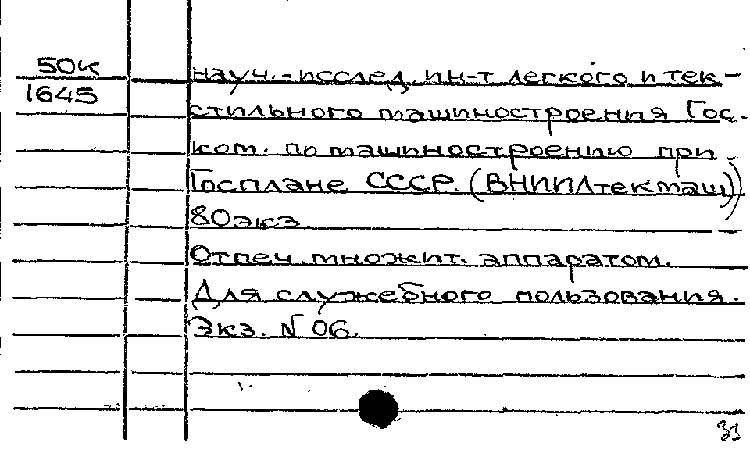 50К
1645
науч.-исслед. ин-т легкого и тек-
стильного машиностроения Гос.
ком. по машиностроению при
Госплане СССР. (ВНИИЛтекмаш))
80экз
Отпеч. множит. аппаратом.
Для служебного пользования.
Экз. N 06.
31